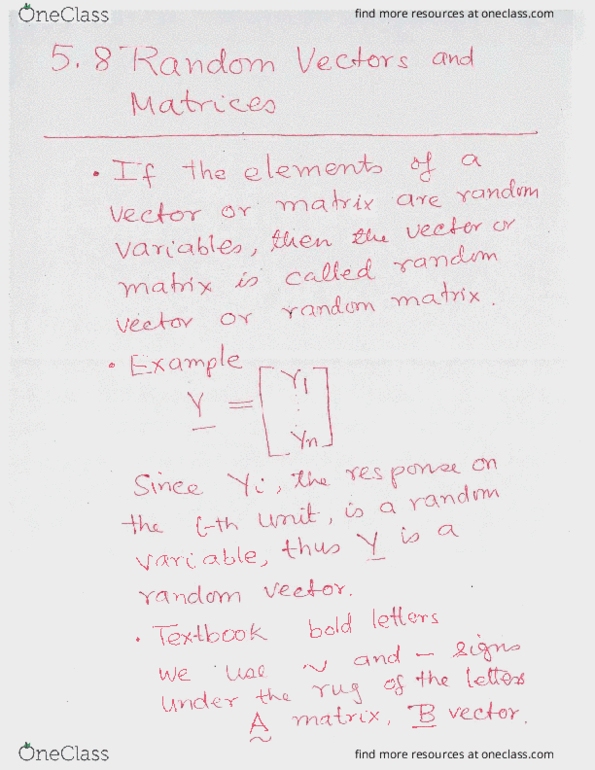 OneClass
find more resources at oneclass.com
5.8 Random Vectors and
Matrices
• If the elements of a
vector or matrix are random
variables, then the vector or
matrix is called random
vector or random matrix.
• Example
Y = [Y1
⋮
Yn]
Since Yi, the response on
the i-th unit, is a random
variable, thus Y is a
random vector.
• Textbook bold letters
we use ~ and – signs
under the rug of the letters
A matrix, B vector.
OneClass
find more resources at oneclass.com